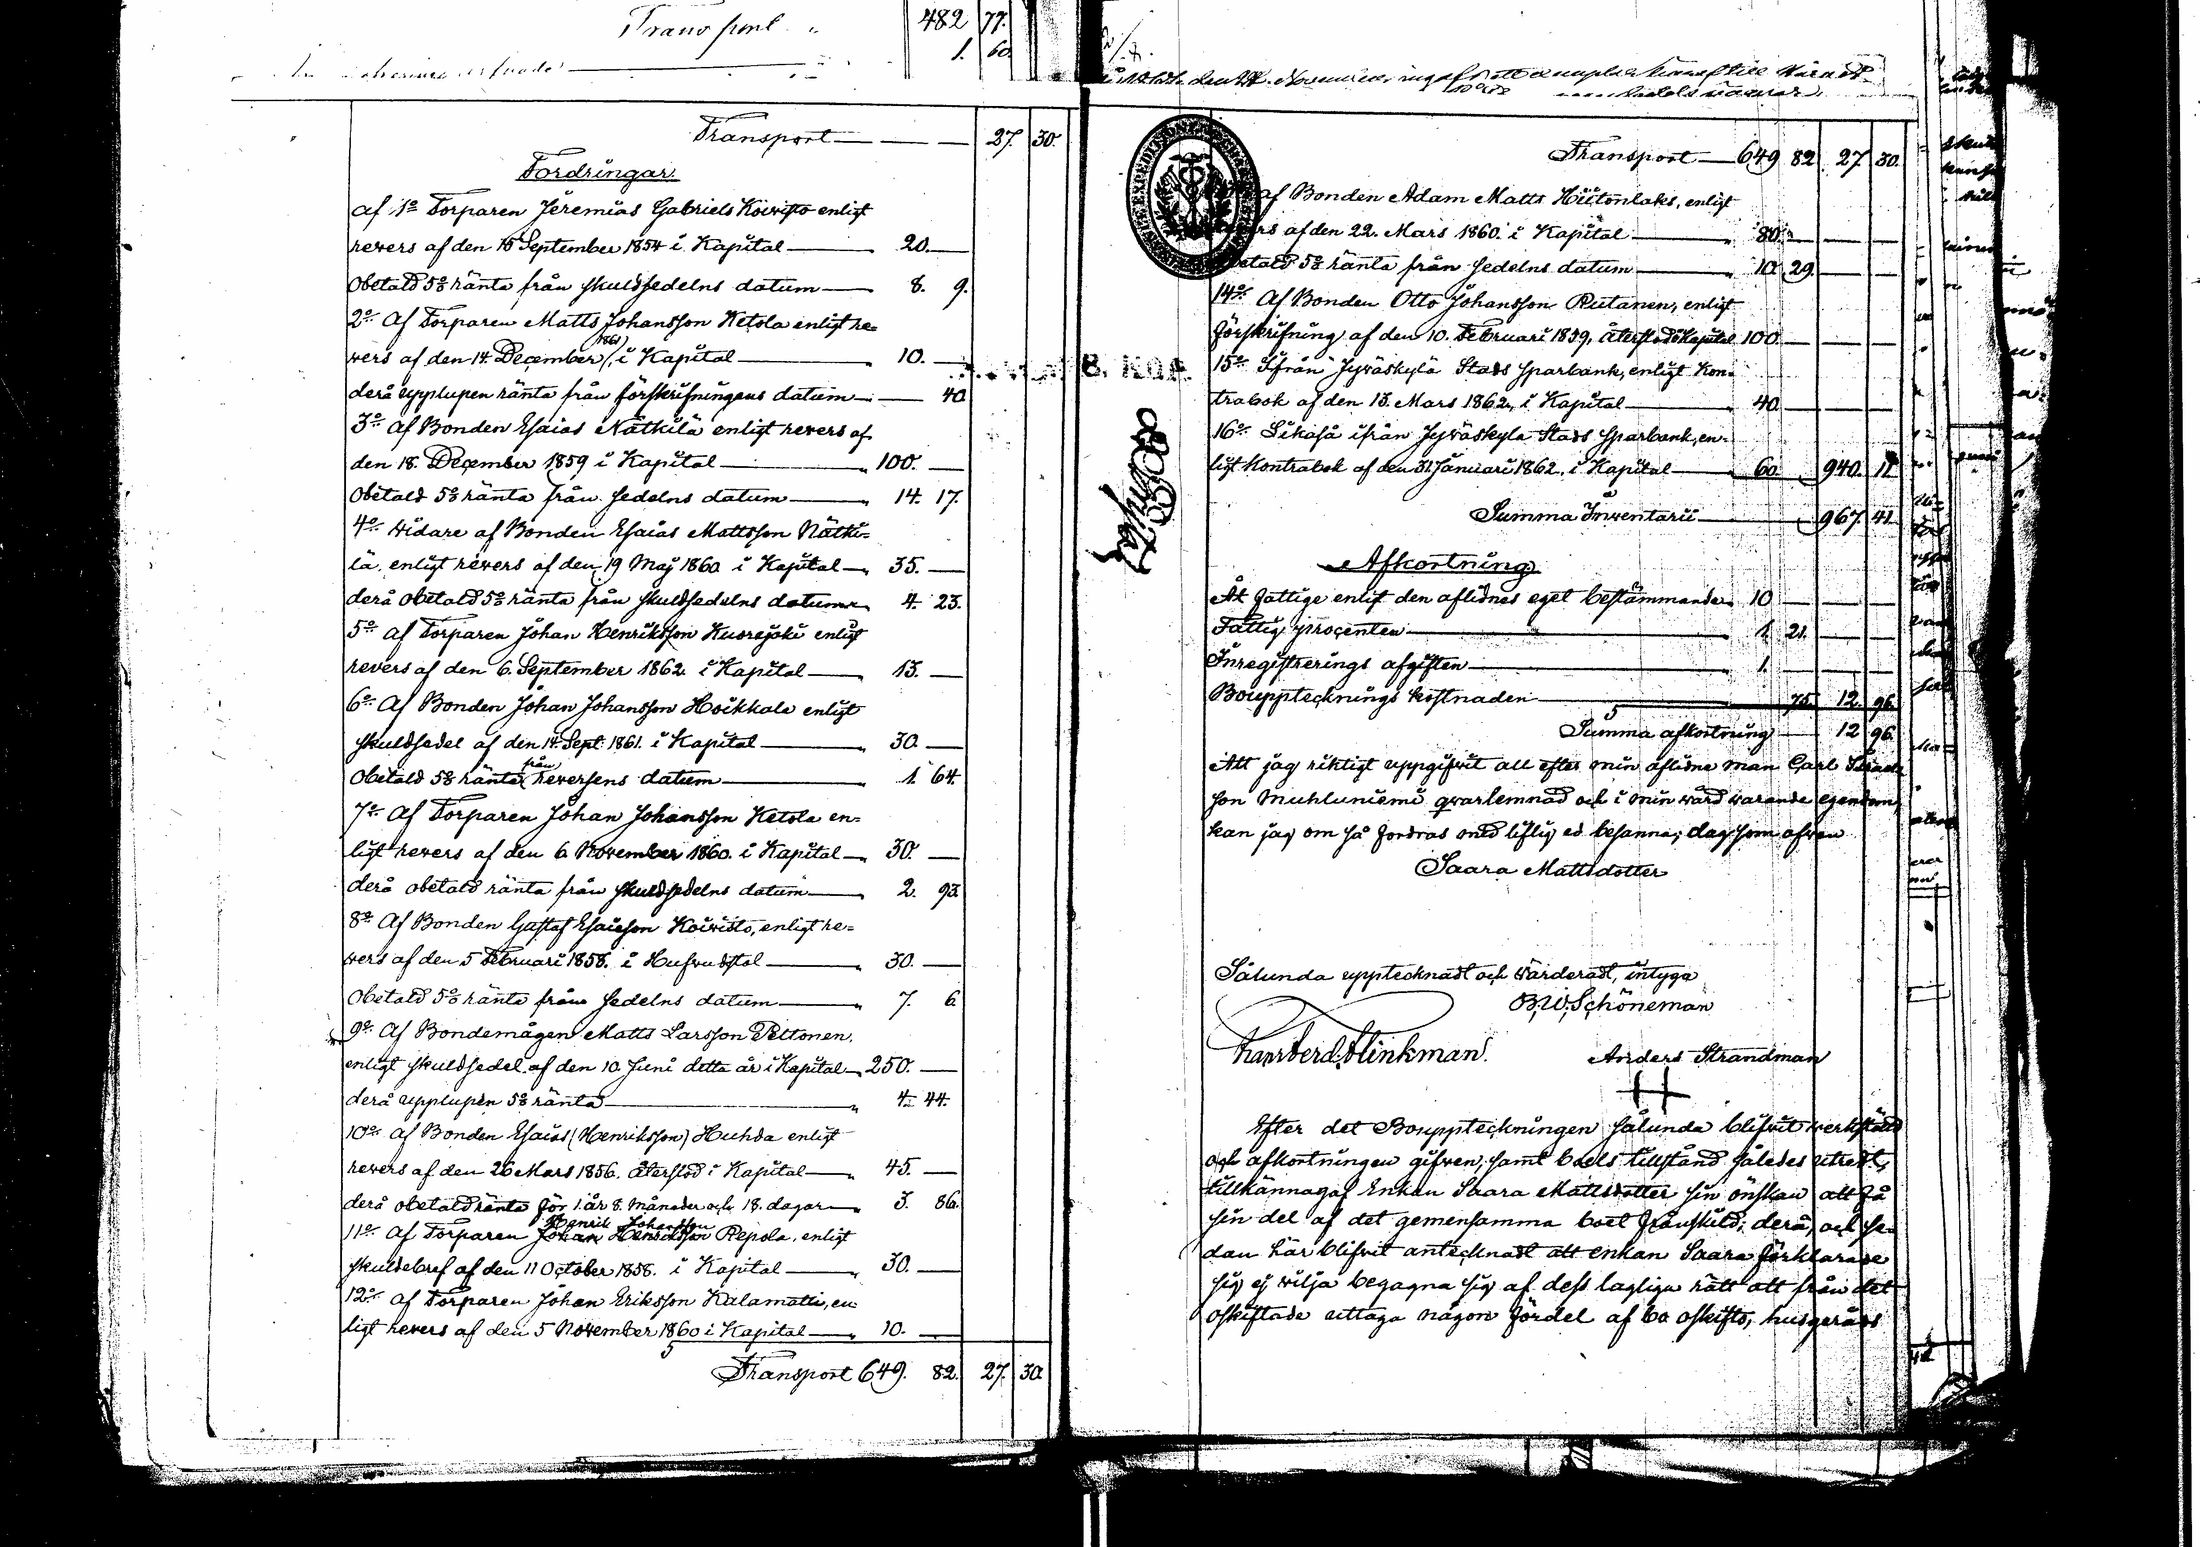 Transport " 482 77.
1. 60.
Transport — — — 27. 30.
Fordringar.
af 1o Torparen Jeremias Gabriels Koivisto enligt
revers af den 15 September 1854 i Kapital — " 20. —
Obetald 5% ränta från skuldsedelns datum — " 8. 9.
2o Af Torparen Matts Johansson Ketola enligt re=
vers af den 14. December (1861), i Kapital — " 10. —
derå upplupen ränta från förskrifningens datum — " — 40
3o Af Bonden Esaias Nätkilä enligt revers af
den 18. December 1859 i Kapital — " 100. —
Obetald 5% ränta från sedelns datum — " 14. 17.
4o Vidare af Bonden Esaias Mattsson Nätki=
lä, enligt revers af den 19 Maj 1860 i Kapital — " 35. —
derå obetald 5% ränta från skuldsedelns datum " 4. 23.
5o Af Torparen Johan Henriksson Kuorejoki enligt
revers af den 6. September 1862 i Kapital — " 13. —
6o Af Bonden Johan Johansson Hoikkala enligt
skuldsedel af den 14. Sept. 1861. i Kapital — " 30. —
Obetald 5% ränta från reversens datum — " 1. 64.
7o Af Torparen Johan Johansson Ketola en=
ligt revers af den 6. November 1860. i Kapital — " 30. —
derå obetald ränta från skuldsedelns datum — " 2. 93.
8o Af Bonden Gustaf Esaiesson Koivisto, enligt re=
vers af den 5 Februari 1858. i Hufvudstol — " 30. —
Obetald 5% ränta från sedelns datum — " 7. 6.
9o Af Bondemågen Matts Larsson Peltonen,
enligt skuldsedel af den 10. Juni detta år i Kapital " 250. —
derå upplupen 5% ränta — " 4. 44.
10o Af Bonden Esaias (Henriksson) Huhda enligt
revers af den 26 Mars 1856. återstod i Kapital — " 45. —
derå obetald ränta för 1. år 8. Månader och 18. dagar " 3. 86.
Henrik Johansson
11o Af Torparen Johan Henriksson Repola, enligt
skuldebref af den 11 October 1858. i Kapital — " 30. —
12o Af Torparen Johan Eriksson Kalamatti, en=
ligt revers af den 5 November 1860 i Kapital — " 10. —
Transport 649. 82. 27. 30.
Transport — 649 82 27. 30.
af Bonden Adam Matts Hiitonlaks, enligt
revers af den 22. Mars 1860. i Kapital — " 80. " — —
Obetald 5% ränta från sedelns datum — " 10. 29. — —
14o Af Bonden Otto Johansson Rutanen, enligt
förskrifning af den 10. Februari 1859, återstods Kapital 100. — — —
15o Ifrån Jyväskylä Stads Sparbank, enligt Kon=
trabok af den 13. Mars 1862, i Kapital — " 40. — — —
16o Likaså ifrån Jyväskylä Stads Sparbank, en=
ligt Kontrabok af den 31. Januari 1862. i Kapital — " 60. 940. 11
Summa Inventarii — 967. 41.
Afkortning
Åt fattige enligt den aflidnes eget bestämmande " 10 — — —
Fattig procenten — " 1. 21. — —
Inregistrerings afgiften — " 1. — — —
Bouppteckningskostnaden — 75. 12. 96.
Summa afkortning — 12 96.
Att jag riktigt uppgifvit all efter min aflidne man Carl
son Muhluniemi qvarlemnad och i min vård varande egendom,
kan jag om så fordras med liflig ed besanna; dag som ofvan
Saara Mattsdotter
Sålunda upptecknadt och värderadt, intyga
B.W. Schöneman
Klinkman.
Anders Strandman
Efter det Bouppteckningen sålunda blifvit verkstäld
och afkortningen gifven, samt boets tillstånd således utredt,
tillkännagaf Enkan Saara Mattsdotter sin önskan att få
sin del af det gemensamma boet frånskild; derå, och se=
dan här blifvit antecknadt att enkan Saara förklarade
sig ej vilja begagna sig af dess lagliga rätt att från det
oskiftade uttaga någon fördel af bo oskifto, husgeråds